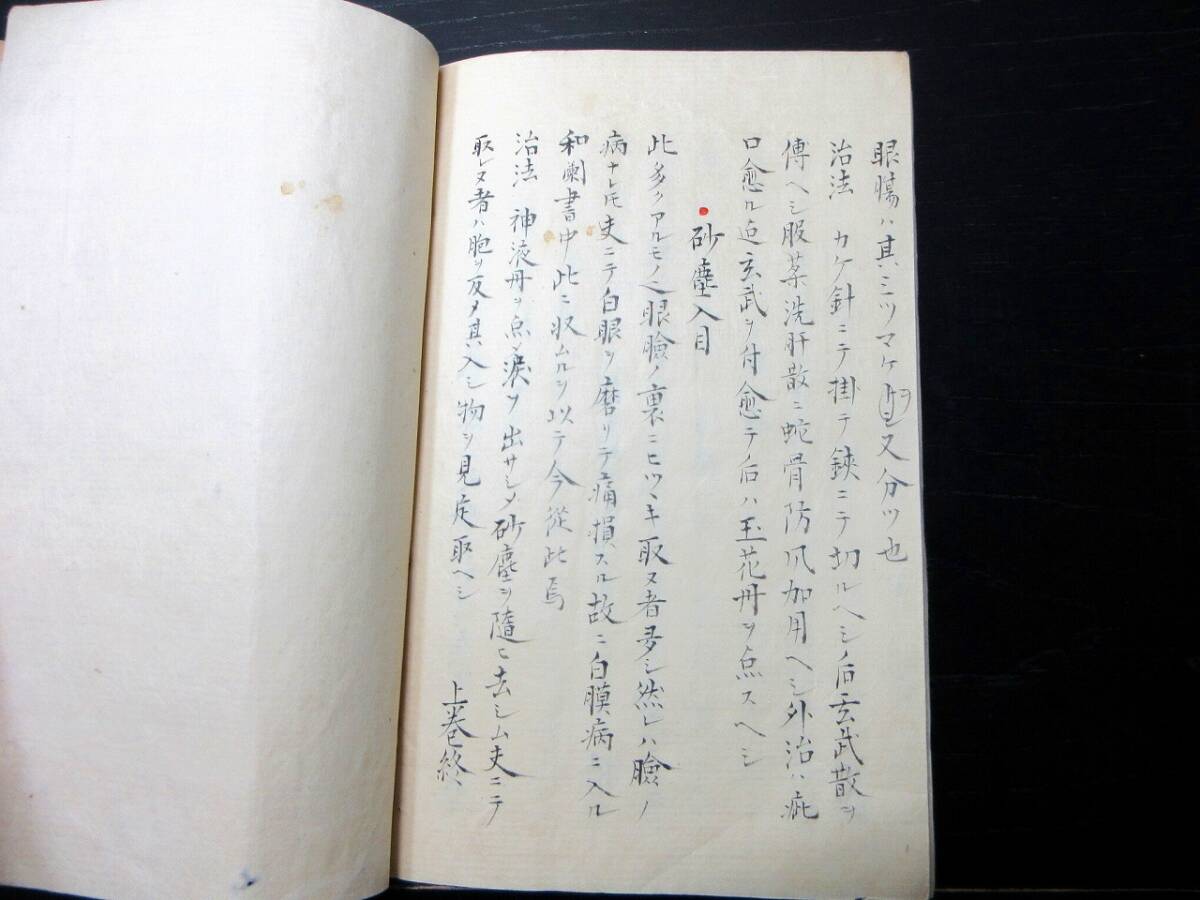 眼瘍ハ其ミツマケ ヲ又分ツ也
治法　カケ針ニテ掛テ鋏ニテ切ルヘシ后玄武散ヲ
傅ヘシ服薬洗肝散ニ蛇骨防风加用ヘシ外治ハ疵
口愈ル迠玄武ヲ付愈テ后ハ玉花丹ヲ点スヘシ
砂塵入目
此多クアルモノ也眼瞼ノ裏ニヒツヽキ取ヌ者多シ然レハ瞼ノ
病ナレ𪜈夫ニテ白眼ヲ磨リテ痛損スル故ニ白膜病ニ入ル
和蘭書中此ニ収ムルヲ以テ今従此焉
治法　神液丹ヲ点シ涙ヲ出サシメ砂塵ヲ随ヒ去シム夫ニテ
取レヌ者ハ胞ヲ反メ其入シ物ヲ見定取ヘシ
上巻終